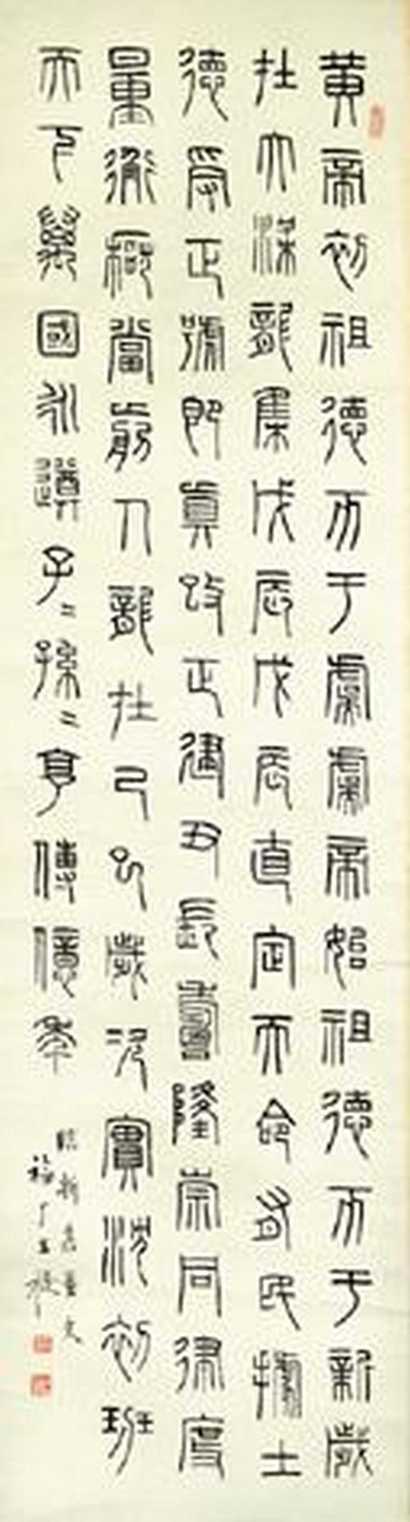 黄帝初祖德帀于虞虞帝始祖德帀于新歲
在大梁龍集戊辰戊辰直定天命有民據土
德受正號即真改正建丑長壽隆崇同律度
量衡稽當前人龍在己巳歲次實沈初班
天下萬國永遵子〻孫〻亨傳億年
臨新莽量文
福厂王禔